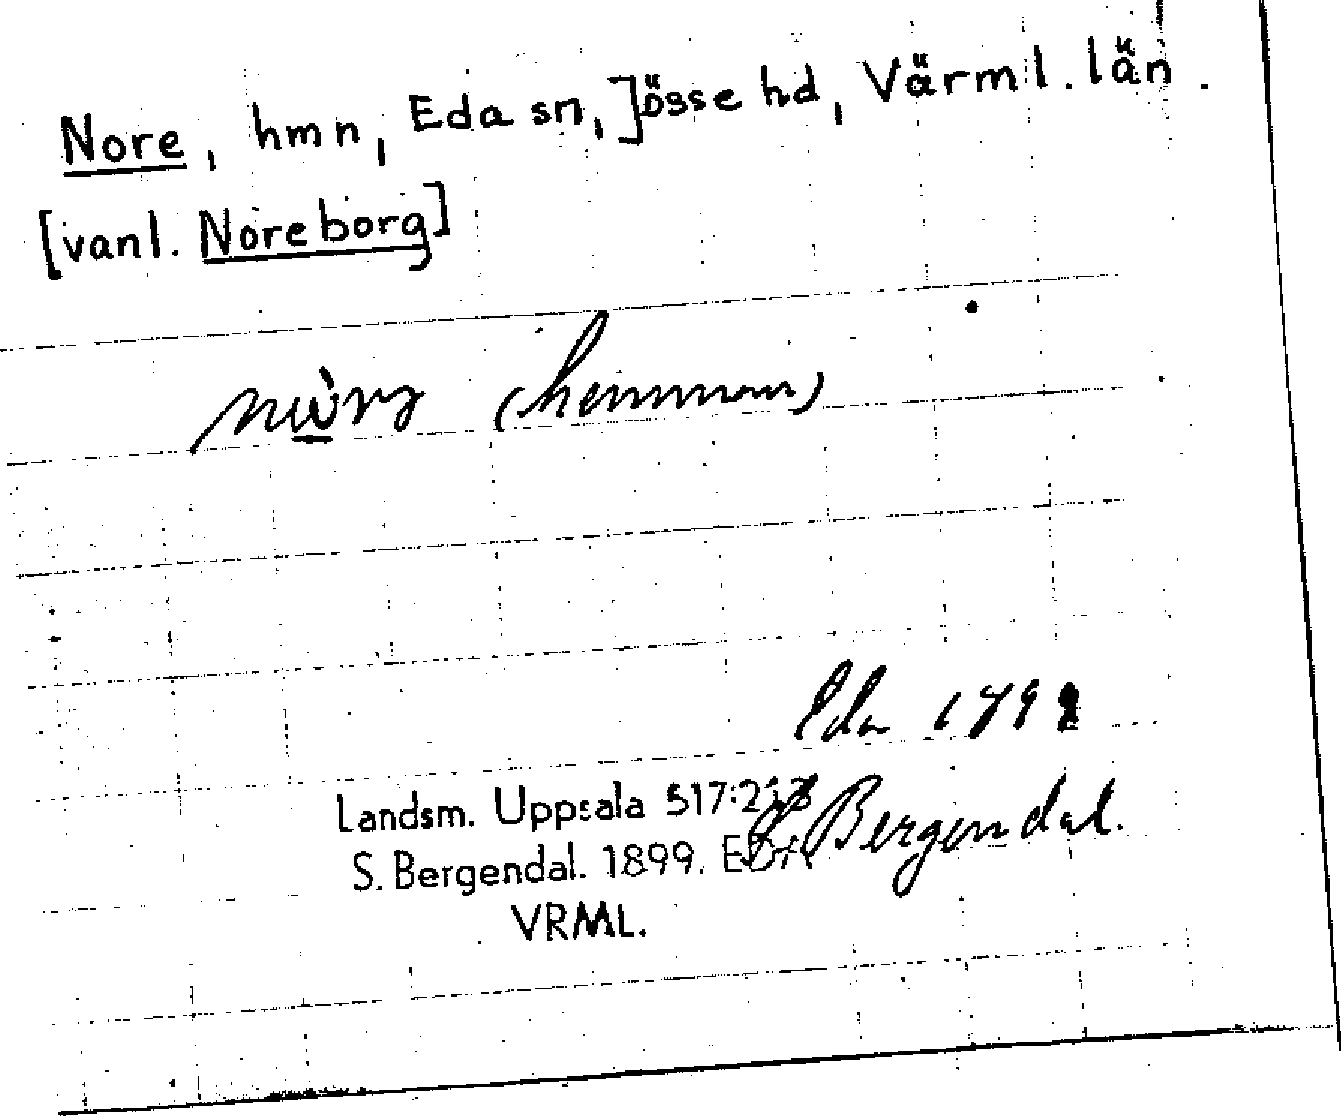 Nore, hmn, Eda sn, Jösse hd, Värml. län.
[vanl. Noreborg]
(hemman)
Eda 1899
Landsm. Uppsala 517:213
S. Bergendal. 1899. EDA
S Bergendal.
VRML.